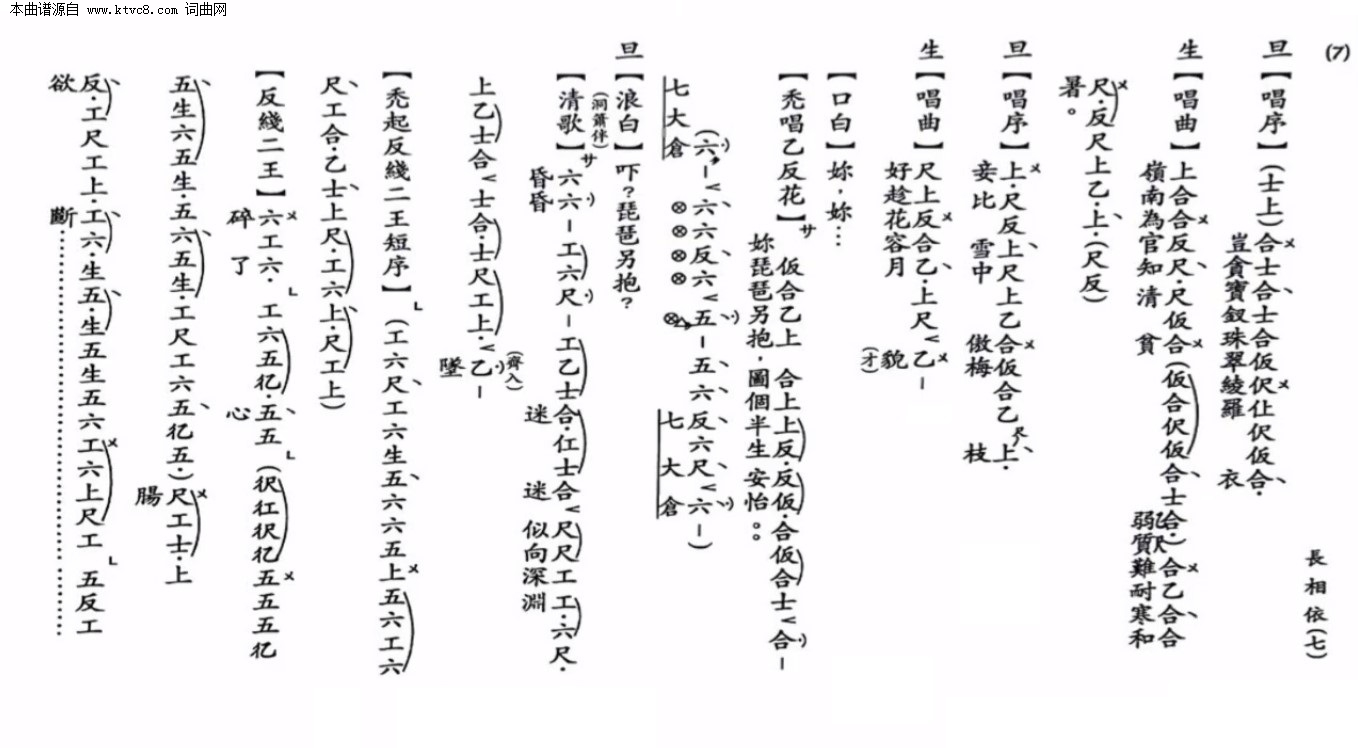 本曲谱源自 www.ktvc8.com 词曲网
(7)
長相依(七)
旦【唱序】(士上)合士合士合仮伬仩伬仮合.
豈貪寶釵珠翠綾羅 衣
生【唱曲】上合合反尺.尺仮合(仮合伬仮合士合.)合乙合合
嶺南為官知清 貧 弱質難耐寒和
尺.反尺上乙.上.(尺反)
暑。
旦【唱序】上.尺反上尺上乙合仮合乙上.
妾比 雪中 傲梅 枝
生【唱曲】尺上反合乙.上尺乙–
好趁花容月 貌
(才)
【口白】妳,妳…
【禿唱乙反花】サ 仮合乙上 合上上反.反仮.合仮合士合–
妳琵琶另抱,圖個半生 安怡。。
(六–六、六反六五–五、六、反六尺、六–)
七大倉 ⊗⊗⊗⊗ ⊗ 七大倉
旦【浪白】吓?琵琶另抱?
(洞簫伴)
【清歌】サ六六–工六尺–工乙士合.仜士合尺尺工工.六尺.
昏昏 迷 迷 似向深淵
上乙士合士合.士尺工上.乙–
(齊入)
墜
【禿起反綫二王短序】(工六尺、工六生五、六六五上五六工六
尺、工合.乙士、上尺、工六上、.尺工上)
【反綫二王】六工六. 工六五亿.五五(伬仜伬亿五五五亿
碎 了 心
五生六五生.五六五生.工尺工六五、亿五.)尺工士.上
腸
反.工尺工上.工六.生五.生五生五六工六上尺工 五反工
欲 斷………………………… …………